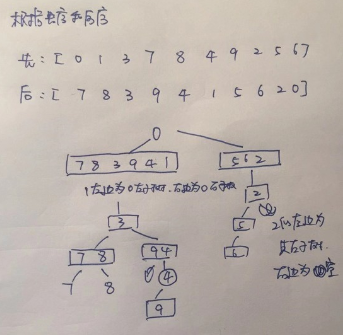 根据先序和后序
先：[ 0 1 3 7 8 4 9 2 5 6]
后：[ 7 8 3 9 4 1 5 6 2 0]
0
7 8 3 9 4 1
5 6 2
1左边为0左子树，右边为0右子树
2
3
5
2的左边为
其左子树，
右边为空
7 8
9 4
6
7
8
4
9